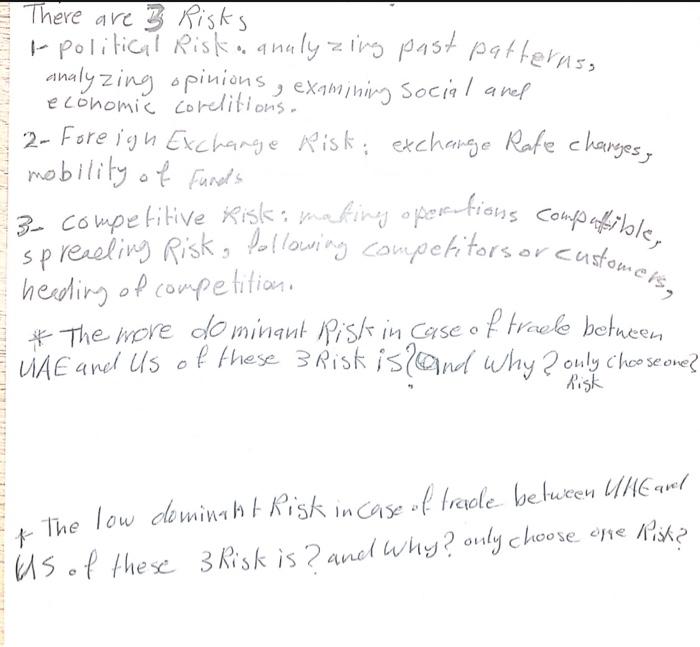 There are 3 Risks
1- political Risk. analyzing past patterns,
analyzing opinions, examining Social and
economic conditions.
2- Foreign Exchange Risk: exchange Rate changes,
mobility of Funds
3- competitive Risk: making operations compatible,
spreading Risk, following competitors or customers,
heading of competition.
* The more dominant Risk in case of trade between
UAE and US of these 3 Risk is? and Why? only choose one?
Risk
* The low dominant Risk in case of trade between UAE and
US of these 3 Risk is? and Why? only choose one Risk?